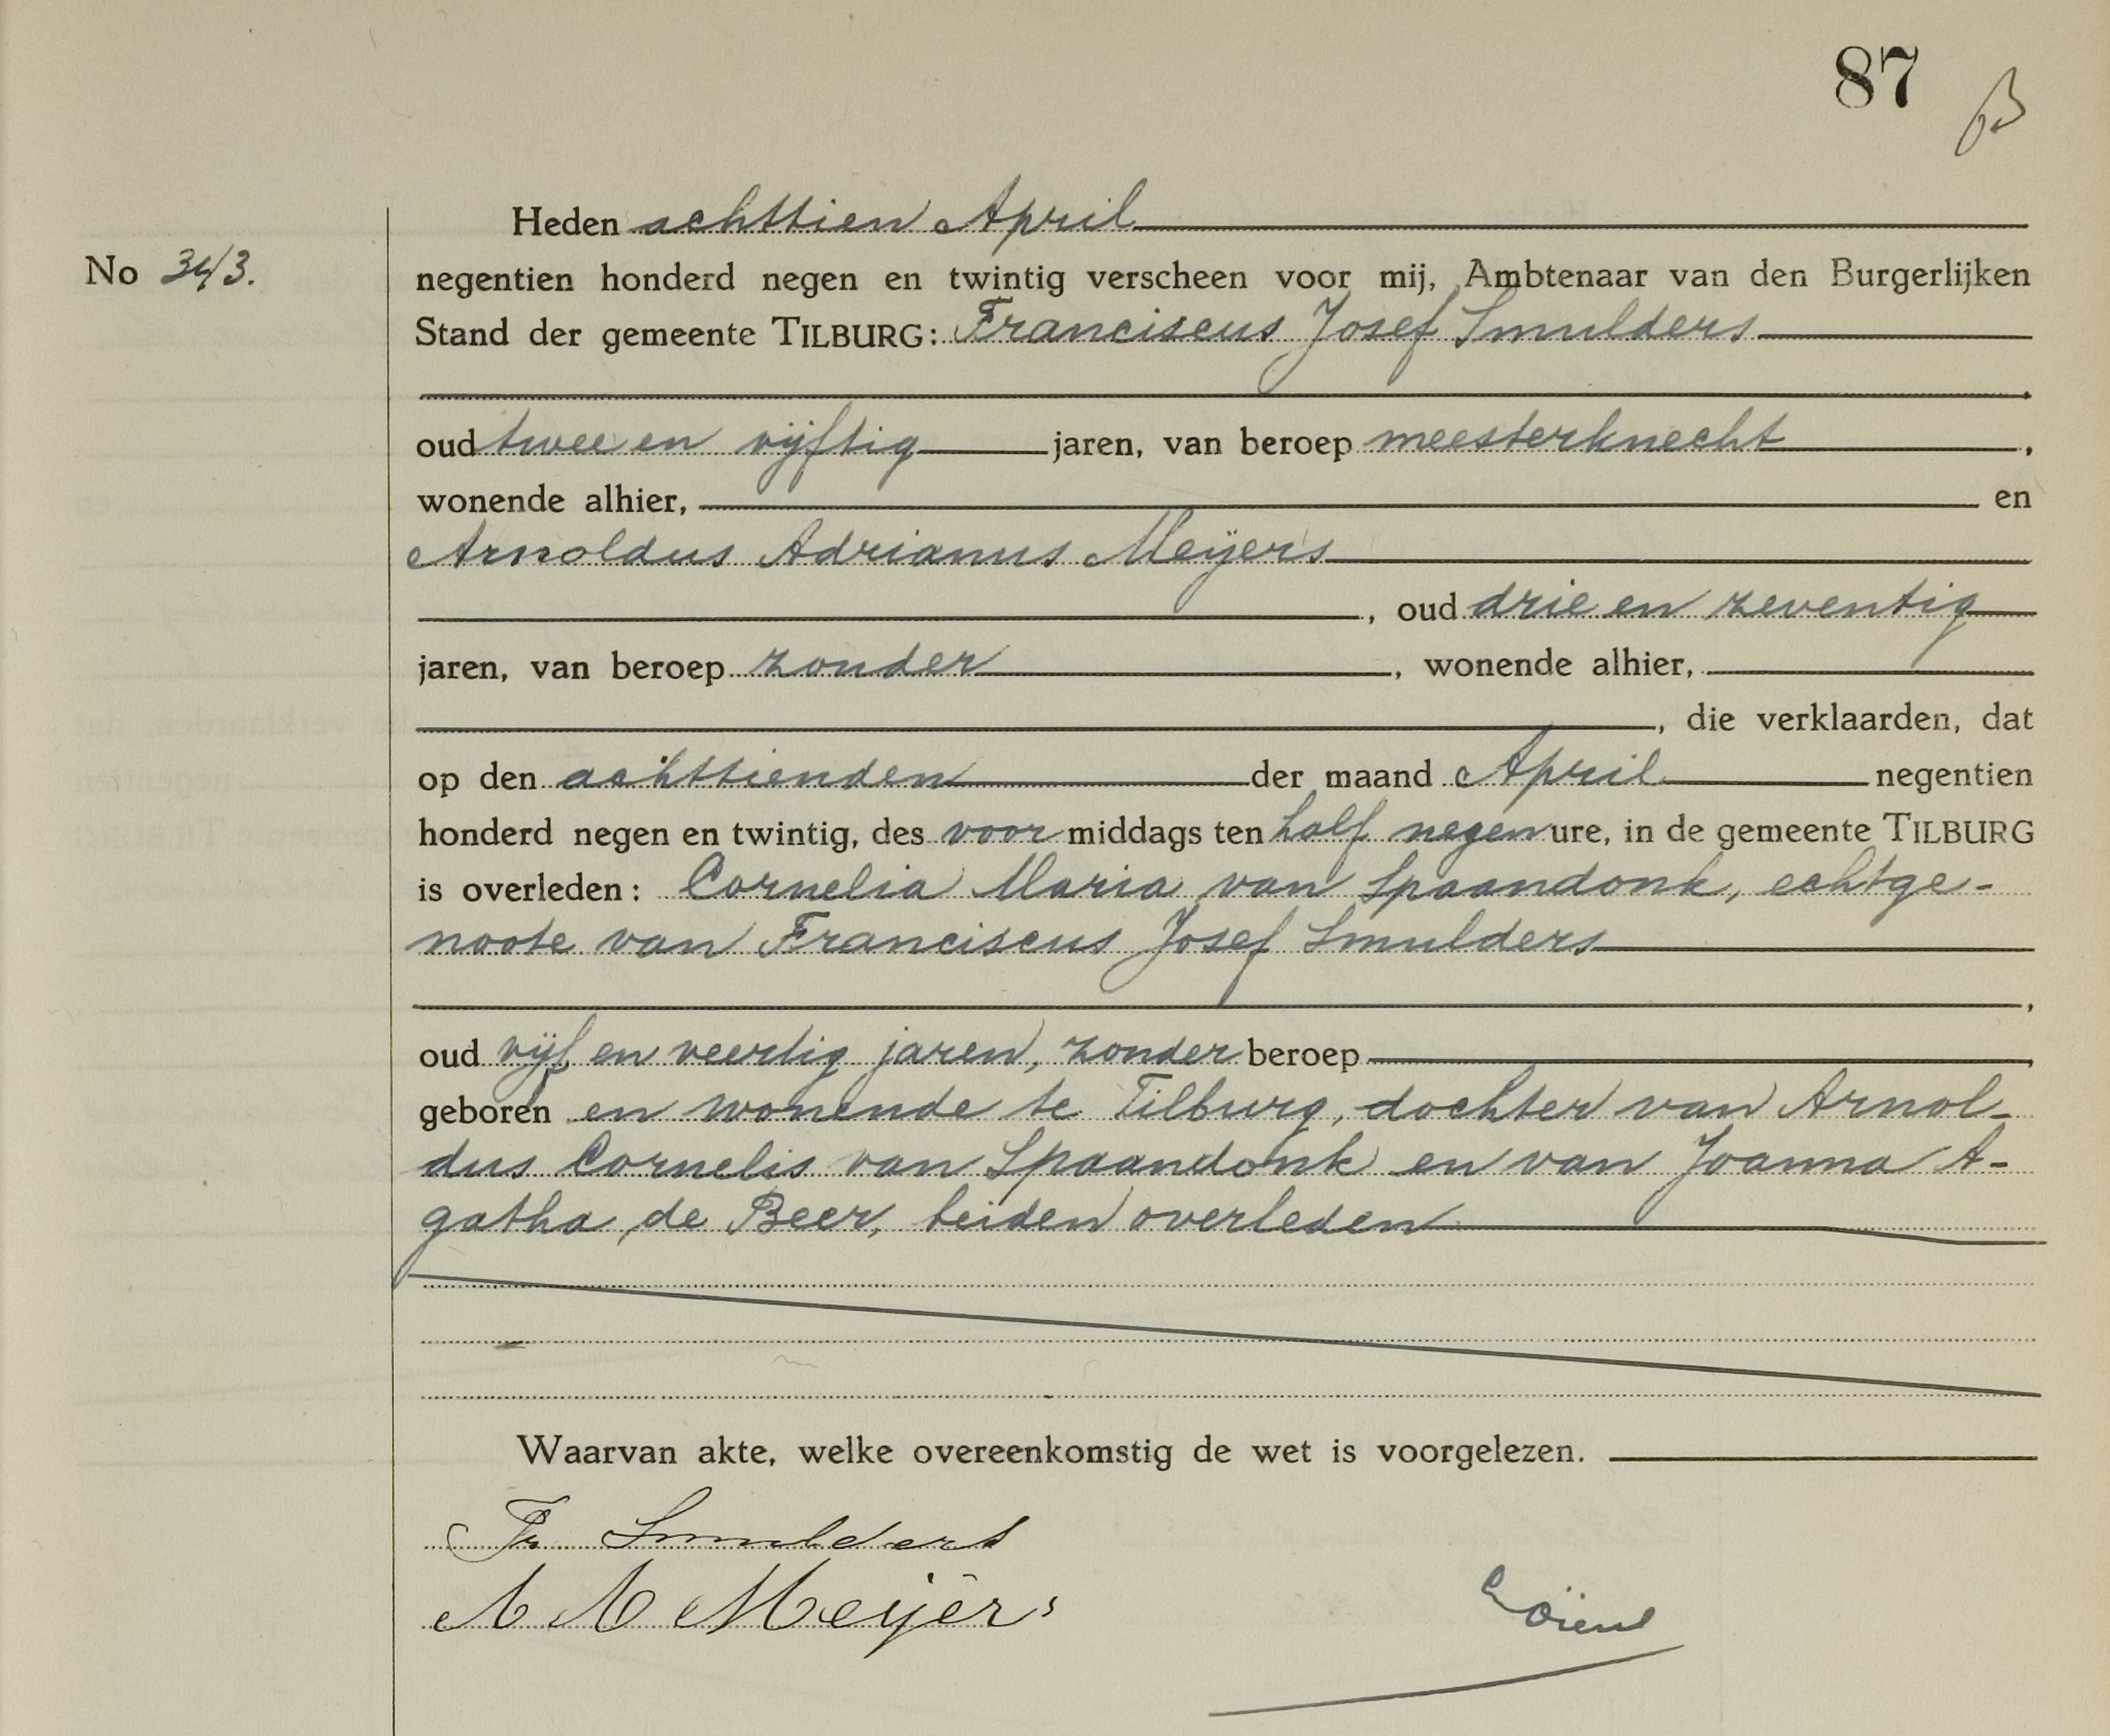 87
Heden achttien April
No 343.
negentien honderd negen en twintig verscheen voor mij, Ambtenaar van den Burgerlijken
Stand der gemeente TILBURG: Franciscus Josef Smulders
,
oud twee en vijftig jaren, van beroep meesterknecht,
wonende alhier, en
Arnoldus Adrianus Meijers
, oud drie en zeventig
jaren, van beroep zonder, wonende alhier,
, die verklaarden, dat
op den achttienden der maand April negentien
honderd negen en twintig, des voor middags ten half negen ure, in de gemeente TILBURG
is overleden: Cornelia Maria van Spaandonk, echtge-
noote van Franciscus Josef Smulders
,
oud vijf en veertig jaren, zonder beroep,
geboren en wonende te Tilburg, dochter van Arnol-
dus Cornelis van Spaandonk en van Joanna A-
gatha de Beer, beiden overleden
Waarvan akte, welke overeenkomstig de wet is voorgelezen.
Fr Smulders
A A Meijers